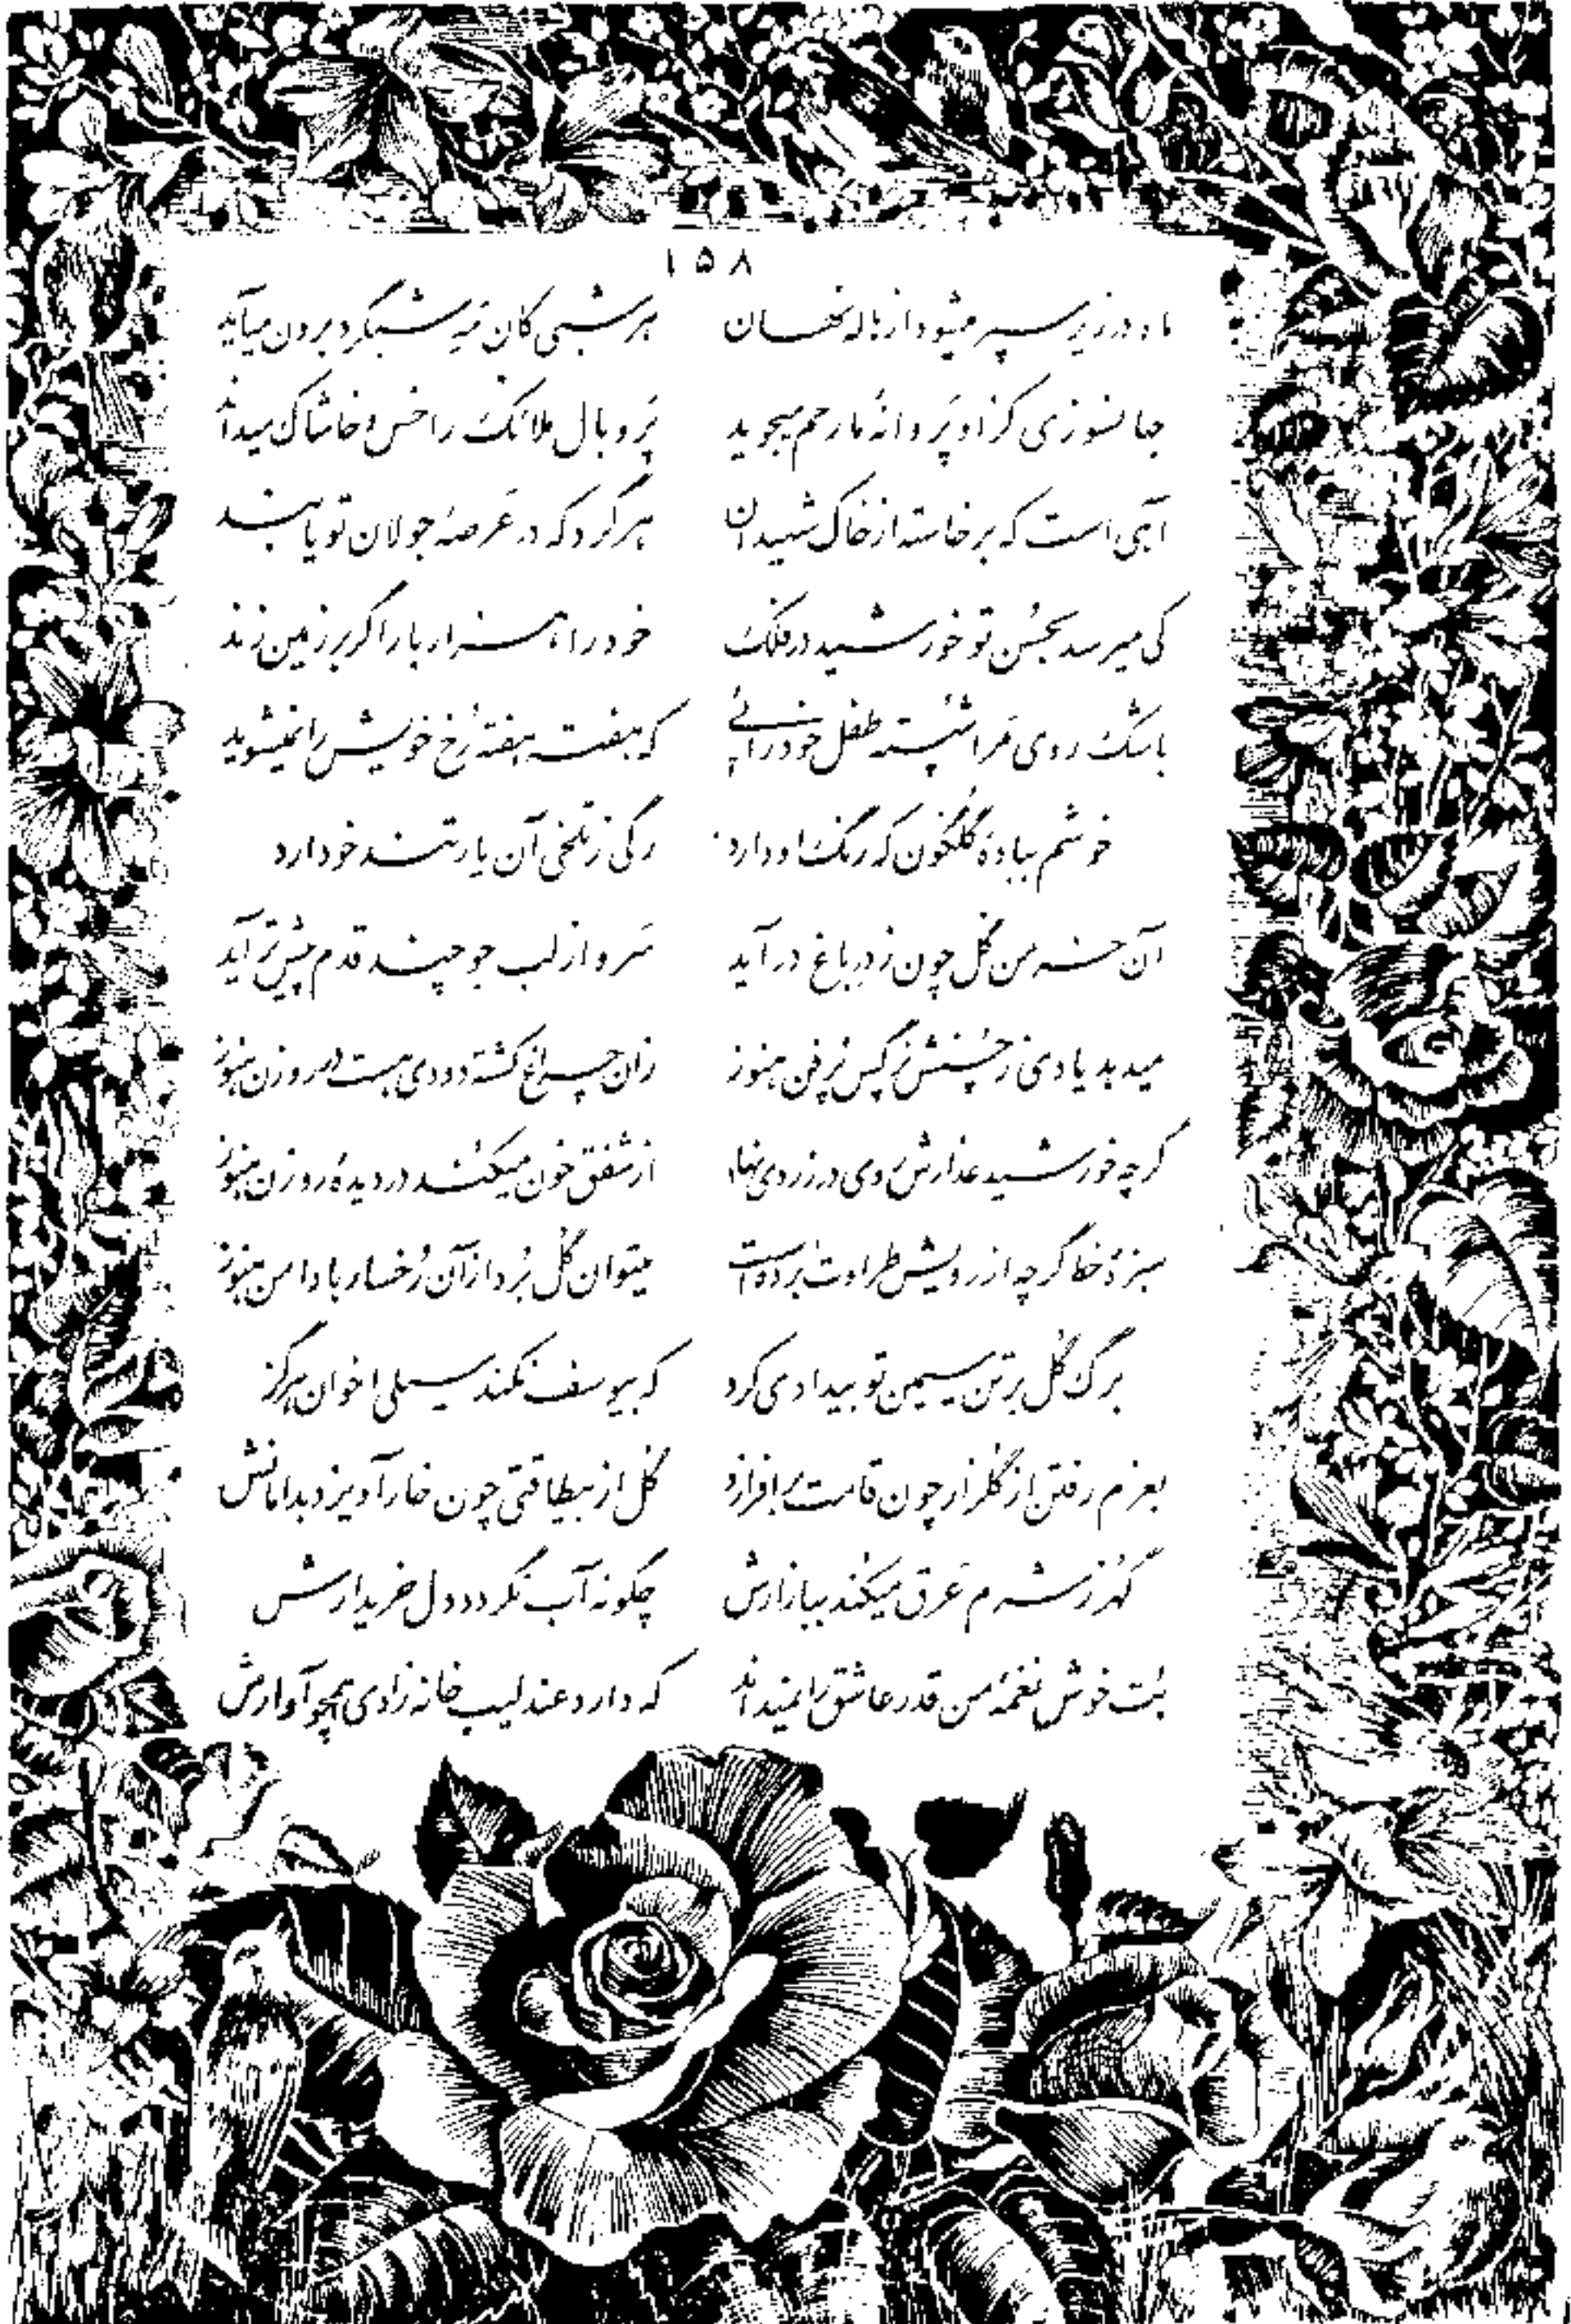 ۱۵۸
ماه در زیر سپر میشود از هاله نهان هر شبی کان مَه شبگرد برون میآید
جهانسوزی کز او پَروانهٔ ما رحم میجوید پَر و بال ملائک را خس و خاشاک میداند
آهی است که برخاسته از خاک شهیدان هر گرد که در عَرصهٔ جولان تو باشد
کی میرسد بحُسن تو خورشید در فلک خود را هزار بار اگر بر زمین زند
باشک روی مَرا شُسته طفل خودرائی که هفته هفته رُخ خویش را نمیشوید
خوشم ببادهٔ گلگون که رنگ او دارد رگی ز تلخی آن یار تند خو دارد
آن خرمن گل چون ز در باغ درآید سَرو از لب جو چند قدم پیش تر آید
میدهد یادی ز حُسنش نرگس پُرفن هنوز زان چراغ کشته دودی هست در روزن هنوز
گرچه خورشید عذارش روی در زردی نهاد از شفق خون میکند در دیدهٔ روزن هنوز
سبزهٔ خط گرچه از رویش طراوت بُرده است میتوان گل بُرد از آن رُخسار با دامن هنوز
برگ گل بر تن سیمین تو بیدادی کرد که بیوسف نکند سیلی اخوان هرگز
بعزم رفتن از گلزار چون قامت برافرازد گل از بیطاقتی چون خار آویزد بدامانش
گهر ز شرم عَرق میکند ببازارش چگونه آب نگردد دل خریدارش
بُت خوش نغمهٔ من قدر عاشق را نمیداند که دارد عندلیب خانه زادی همچو آوازش